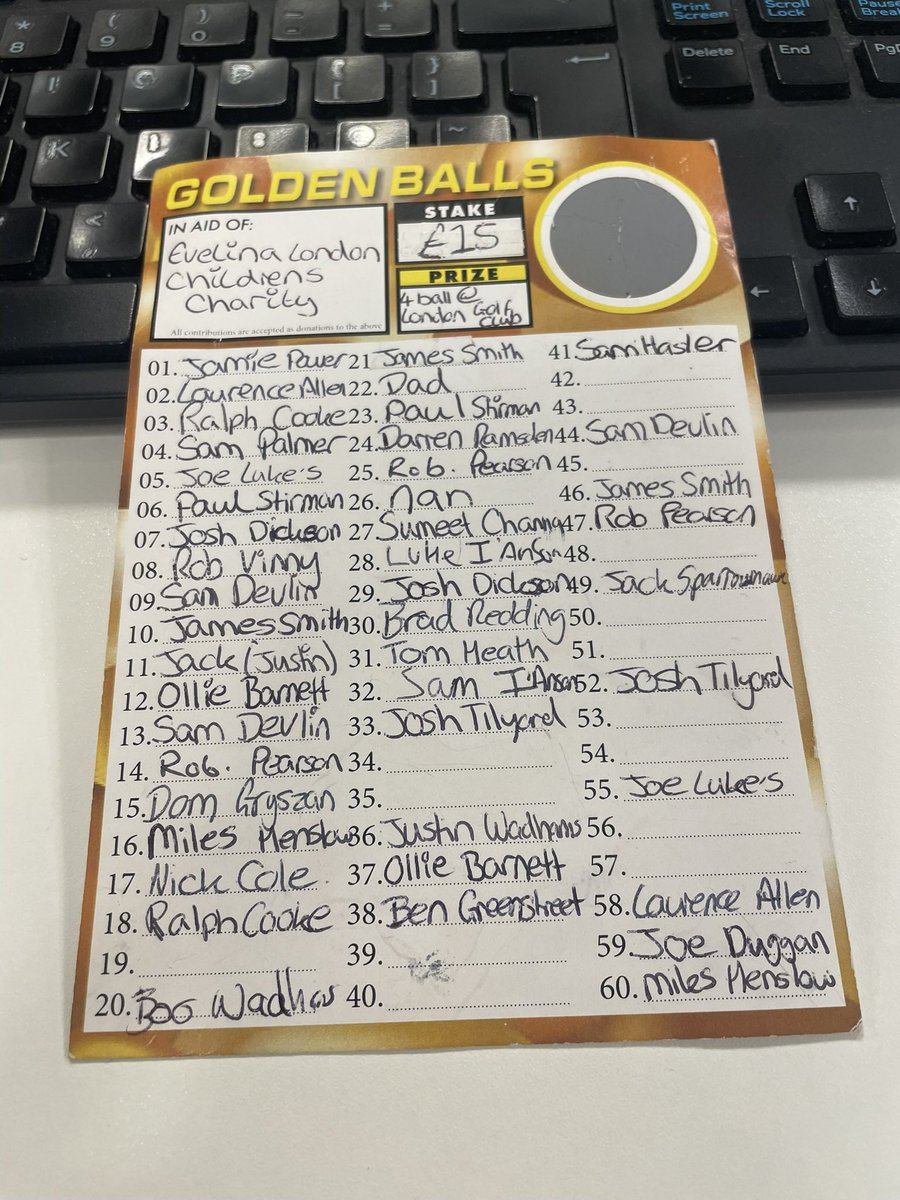 Print Screen
Scroll Lock
Pause Break
Delete
End
GOLDEN BALLS
IN AID OF:
Evelina London
Childrens
Charity
All contributions are accepted as donations to the above
STAKE
£15
PRIZE
4 ball @
London Golf
Club
01. Jamie Power
02. Laurence Allen
03. Ralph Cooke
04. Sam Palmer
05. Joe Luke's
06. Paul Stirman
07. Josh Dickson
08. Rob Vinny
09. Sam Devlin
10. James Smith
11. Jack (Justin)
12. Ollie Barnett
13. Sam Devlin
14. Rob. Pearson
15. Dom Gryszan
16. Miles Henslow
17. Nick Cole
18. Ralph Cooke
19.
20. Boo Wadhams
21 James Smith
22. Dad
23. Paul Stirman
24. Darren Ramsden
25. Rob. Pearson
26. Nan
27 Sumeet Channa
28. Luke I Anson
29. Josh Dickson
30. Brad Redding
31. Tom Heath
32. Sam I'Anson
33. Josh Tilyard
34.
35.
36. Justin Wadhams
37. Ollie Barnett
38. Ben Greenstreet
39.
40.
41 Sam Hasler
42.
43.
44. Sam Devlin
45.
46. James Smith
47. Rob Pearson
48.
49. Jack
50.
51.
52. Josh Tilyard
53.
54.
55. Joe Luke's
56.
57.
58. Laurence Allen
59. Joe Duggan
60. Miles Henslow